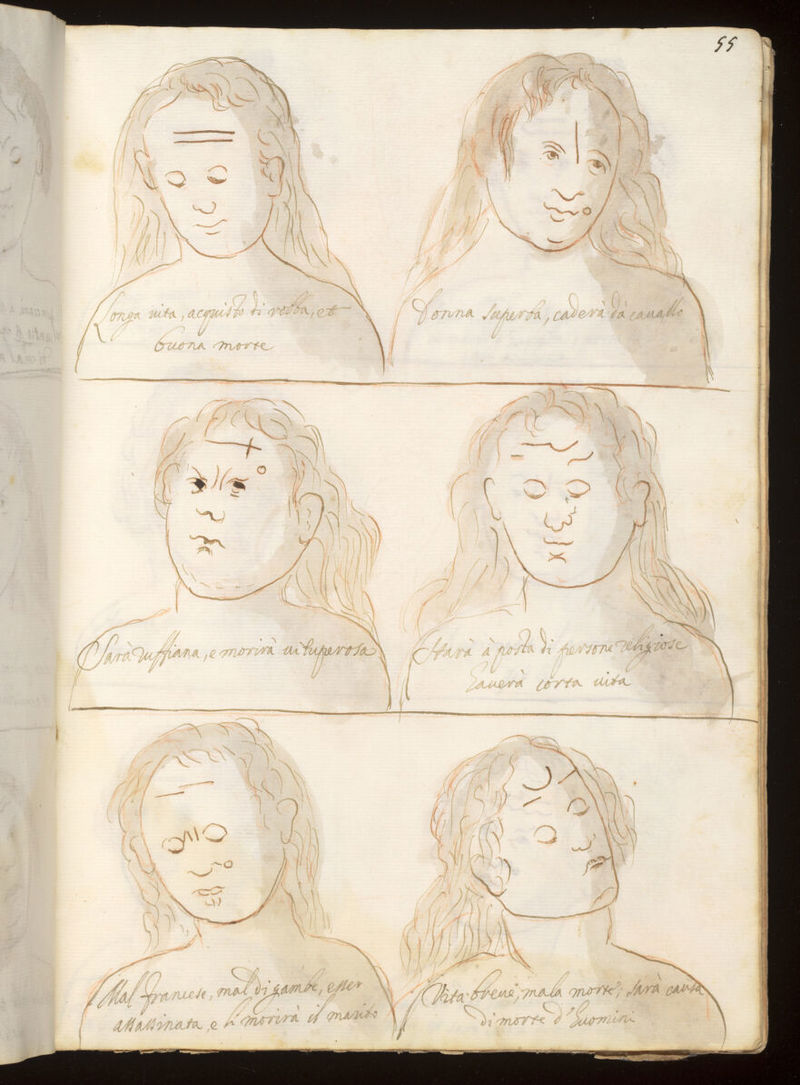 55
Longa uita, acquisto di robba, et
buona morte
Donna superba, caderà da cauallo
Sarà ruffiana, e morirà uituperosa
Starà à posta di persone religiose
hauerà corta uita
Mal francese, mal di gambe, esser
assassinata, e li morirà il marito
Vita breue, mala morte, sarà causa
di morte d'huomini